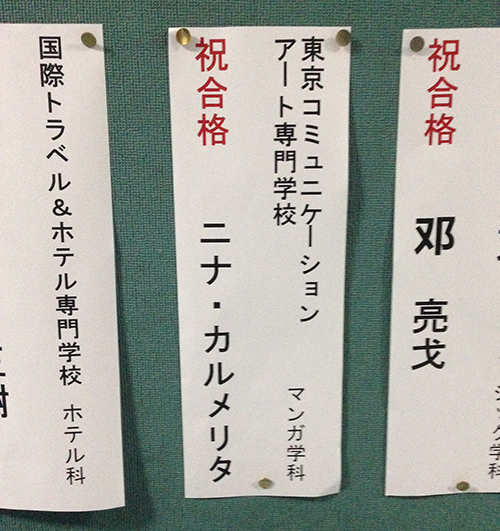 祝合格 邓 亮戈
東京コミュニケーション
アート専門学校
マンガ学科
祝合格 ニナ・カルメリタ
国際トラベル&ホテル専門学校 ホテル科